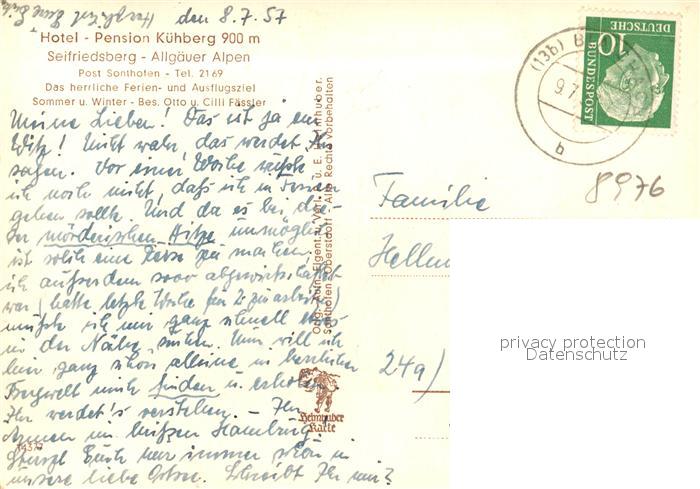 den 8.7.57
Hotel - Pension Kühberg 900 m
Seifriedsberg - Allgäuer Alpen
Post Sonthofen - Tel. 2169
Das herrliche Ferien- und Ausflugsziel
Sommer u. Winter - Bes. Otto u. Cilli Fässler
Meine Lieben! Das ist ja ein
Witz! Nicht wahr, das werdet Ihr
sagen. Vor einer Woche wußte
ich noch nicht, daß ich in Ferien
gehen sollte. Und da es bei die-
ser mörderischen Hitze unmöglich
ist solch eine Reise zu machen,
ich außerdem sooo abgewirtschaftet
war (hatte letzte Woche für 2 zu arbeiten)
mußte ich mir ganz schnell etwas
in der Nähe suchen. Nun will ich
hier ganz schön alleine in herrlicher
Bergwelt mich finden u. erholen.
Ihr werdet's verstehen. - Ihr
Armen im heißen Hamburg.
Stürzt Euch nur immer schön in
unsere liebe Ostsee. Schreibt Ihr mir?
14377
Orig. Aufn. Eigent. u. Verl. A. u. E. Heimhuber.
Sonthofen Oberstdorf - Alle Rechte vorbehalten
Heimhuber
Karte
DEUTSCHE
BUNDESPOST
10
(13b)
9.7.
b
8976
Familie
24a)
privacy protection
Datenschutz